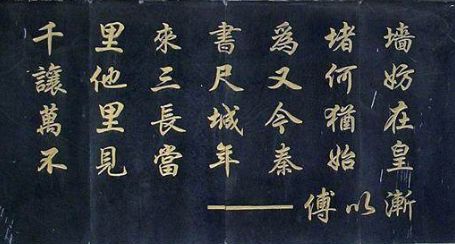 千里來書爲堵墙
讓他三尺又何妨
萬里長城今猶在
不見當年秦始皇
——傅以漸